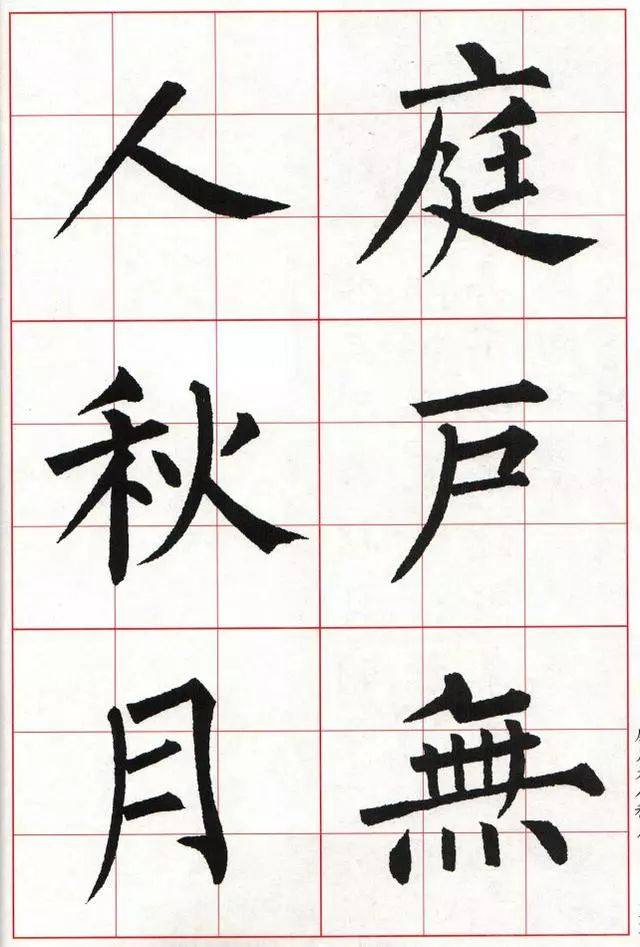 庭戶無
人秋月